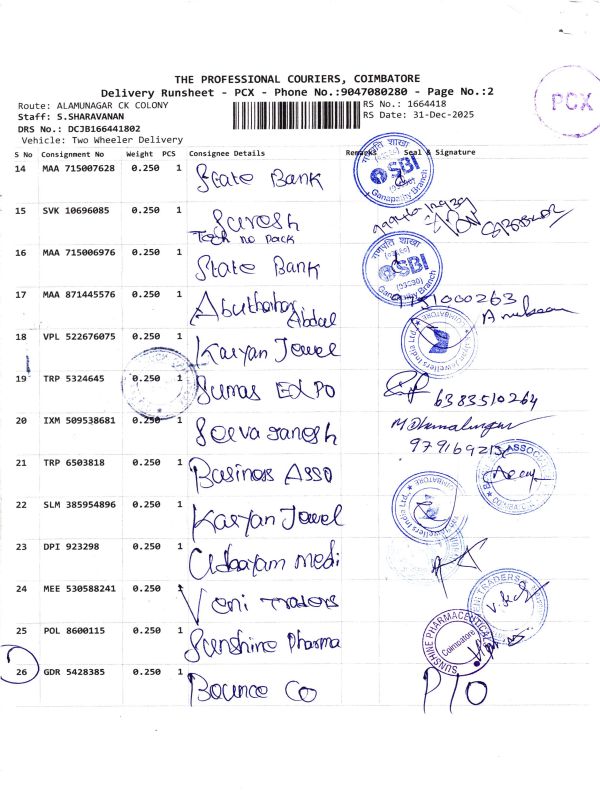 THE PROFESSIONAL COURIERS, COIMBATORE
Delivery Runsheet - PCX - Phone No.:9047080280 - Page No.:2
PCX
Route: ALAMUNAGAR CK COLONY
RS No.: 1664418
Staff: S.SHARAVANAN
RS Date: 31-Dec-2025
DRS No.: DCJB166441802
Vehicle: Two Wheeler Delivery
S No Consignment No Weight PCS Consignee Details Remarks Seal & Signature
14 MAA 715007628 0.250 1 State Bank
गणपति शाखा
SBI
Ganapathy Branch
15 SVK 10696085 0.250 1 Suresh
Tech no Pack
16 MAA 715006976 0.250 1 State Bank
गणपति शाखा
SBI
Ganapathy Branch
17 MAA 871445576 0.250 1 Abuthahar
Abdul
18 VPL 522676075 0.250 1 Kalyan Jewel
19 TRP 5324645 0.250 1 Sumas Expo
6383510264
20 IXM 509538681 0.250 1
21 TRP 6503818 0.250 1 Business Asso
22 SLM 385954896 0.250 1 Kalyan Jewel
23 DPI 923298 0.250 1 Udhayam Medi
24 MEE 530588241 0.250 1 Veni Traders
25 POL 8600115 0.250 1 Sunshine Pharma
SUNSHINE PHARMACEUTICALS
Coimbatore
26 GDR 5428385 0.250 1 Bounce Co
P/O